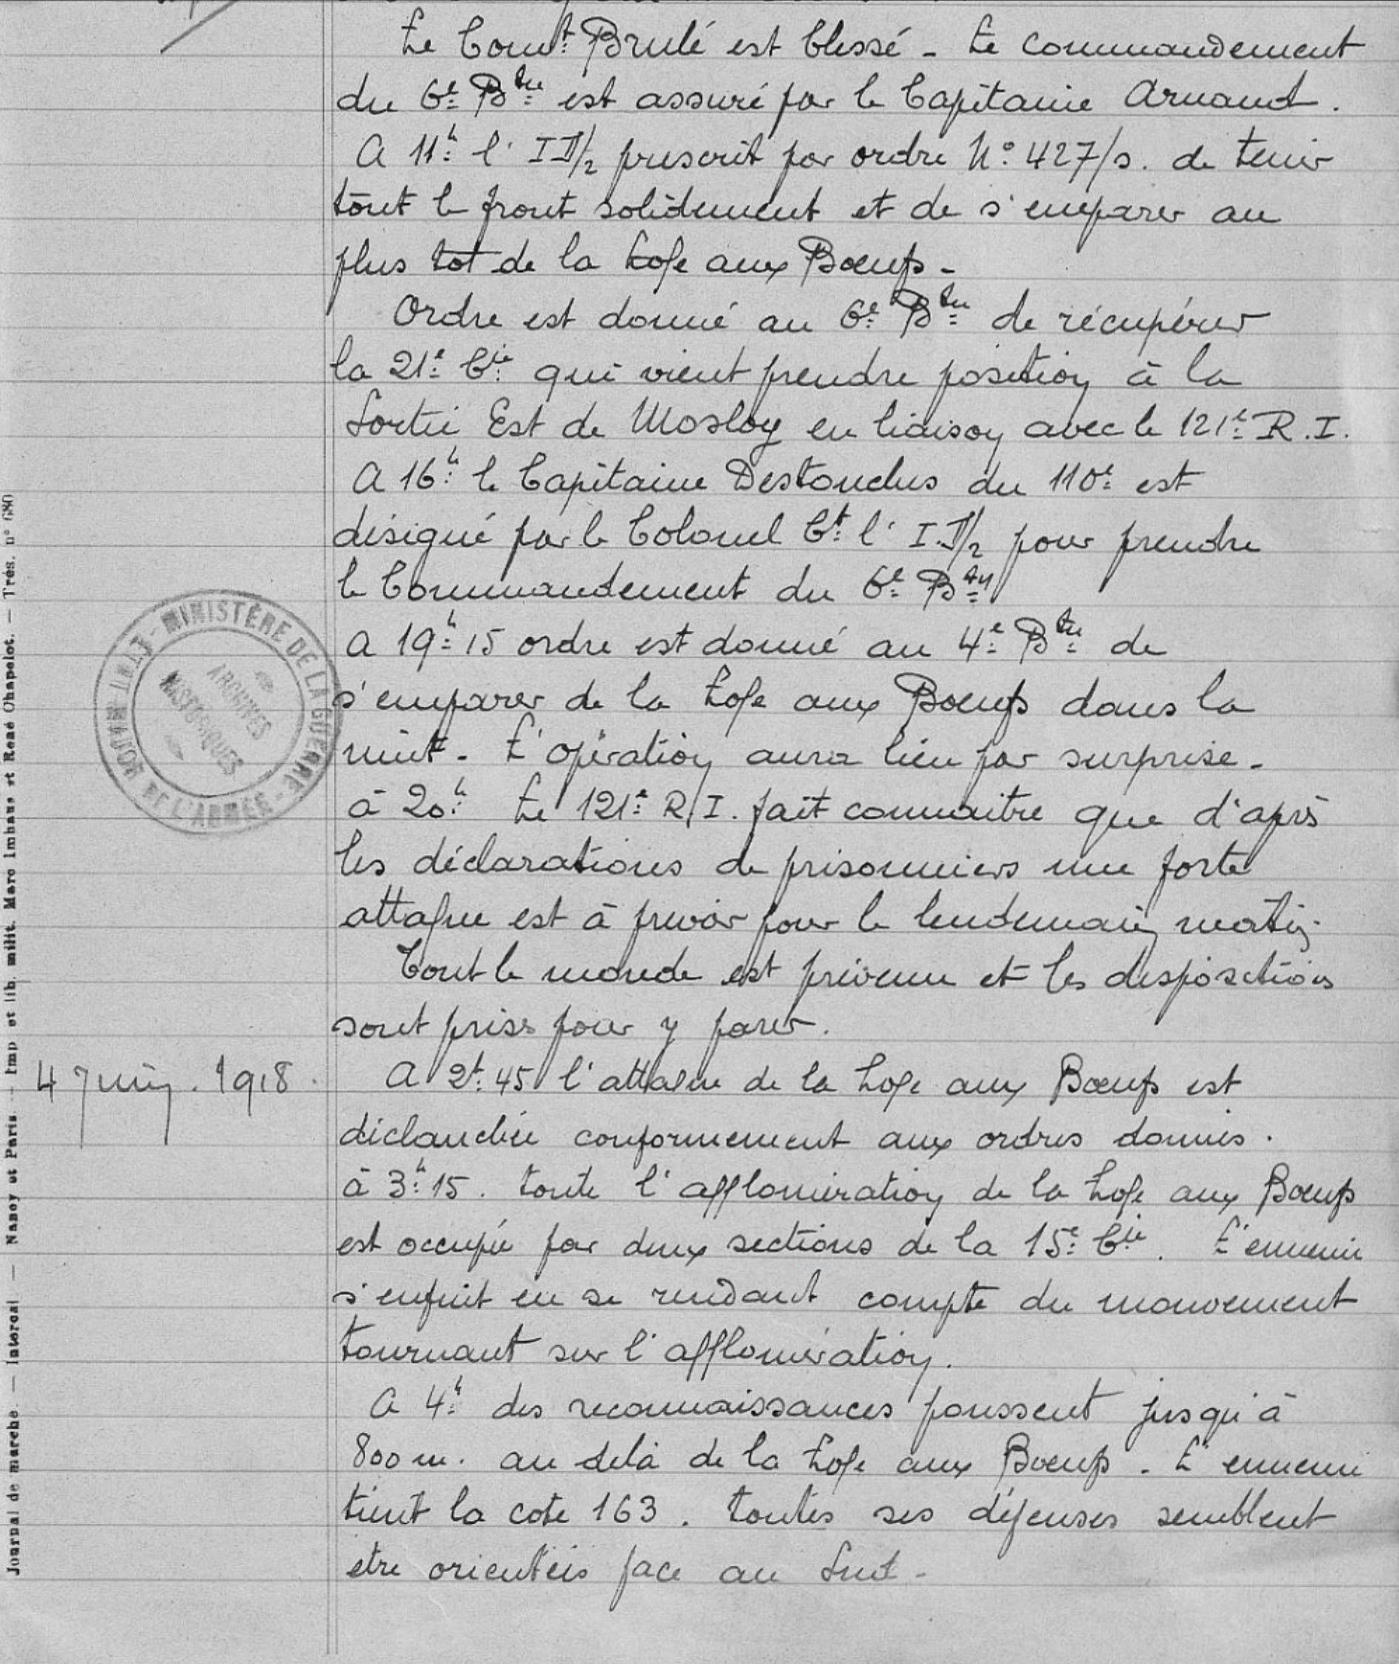 Le Comt Brulé est blessé - Le commandement
du 6e Bton est assuré par le Capitaine Arnaud.
A 11h l'ID/2 prescrit par ordre No 427/s. de tenir
tout le front solidement et de s'emparer au
plus tot de la Loge aux Boeufs -
Ordre est donné au 6e Bton de récupérer
la 21e Cie qui vient prendre position à la
Sortie Est de Mosloy en liaison avec le 121e R.I.
A 16h le Capitaine Destouches du 110e est
désigné par le Colonel Ct l'I.D/2 pour prendre
le Commandement du 6e Bton
a 19h15 ordre est donné au 4e Bton de
s'emparer de la Loge aux Boeufs dans la
nuit - L'opération aura lieu par surprise -
à 20h Le 121e R.I. fait connaitre que d'après
les déclarations de prisonniers une forte
attaque est à prevoir pour le lendemain matin.
Tout le monde est prévenu et les dispositions
sont prises pour y parer.
4 Juin. 1918.
A 2h45 l'attaque de la Loge aux Boeufs est
déclanchée conformement aux ordres donnés.
à 3h15. toute l'agglomération de la Loge aux Boeufs
est occupée par deux sections de la 15e Cie. L'ennemi
s'enfuit en se rendant compte du mouvement
tournant sur l'agglomération.
A 4h des reconnaissances poussent jusqu'à
800 m. au delà de la Loge aux Boeufs - L'ennemi
tient la cote 163. toutes ses défenses semblent
etre orientées face au Sud -
MINISTÈRE DE LA GUERRE
ETAT MAJOR DE L'ARMÉE
ARCHIVES
HISTORIQUES
Journal de marche. — Intercal — Nancy et Paris. — Imp et lib. milit. Marc Imhaus et René Chapelot. — Trés. n° 680